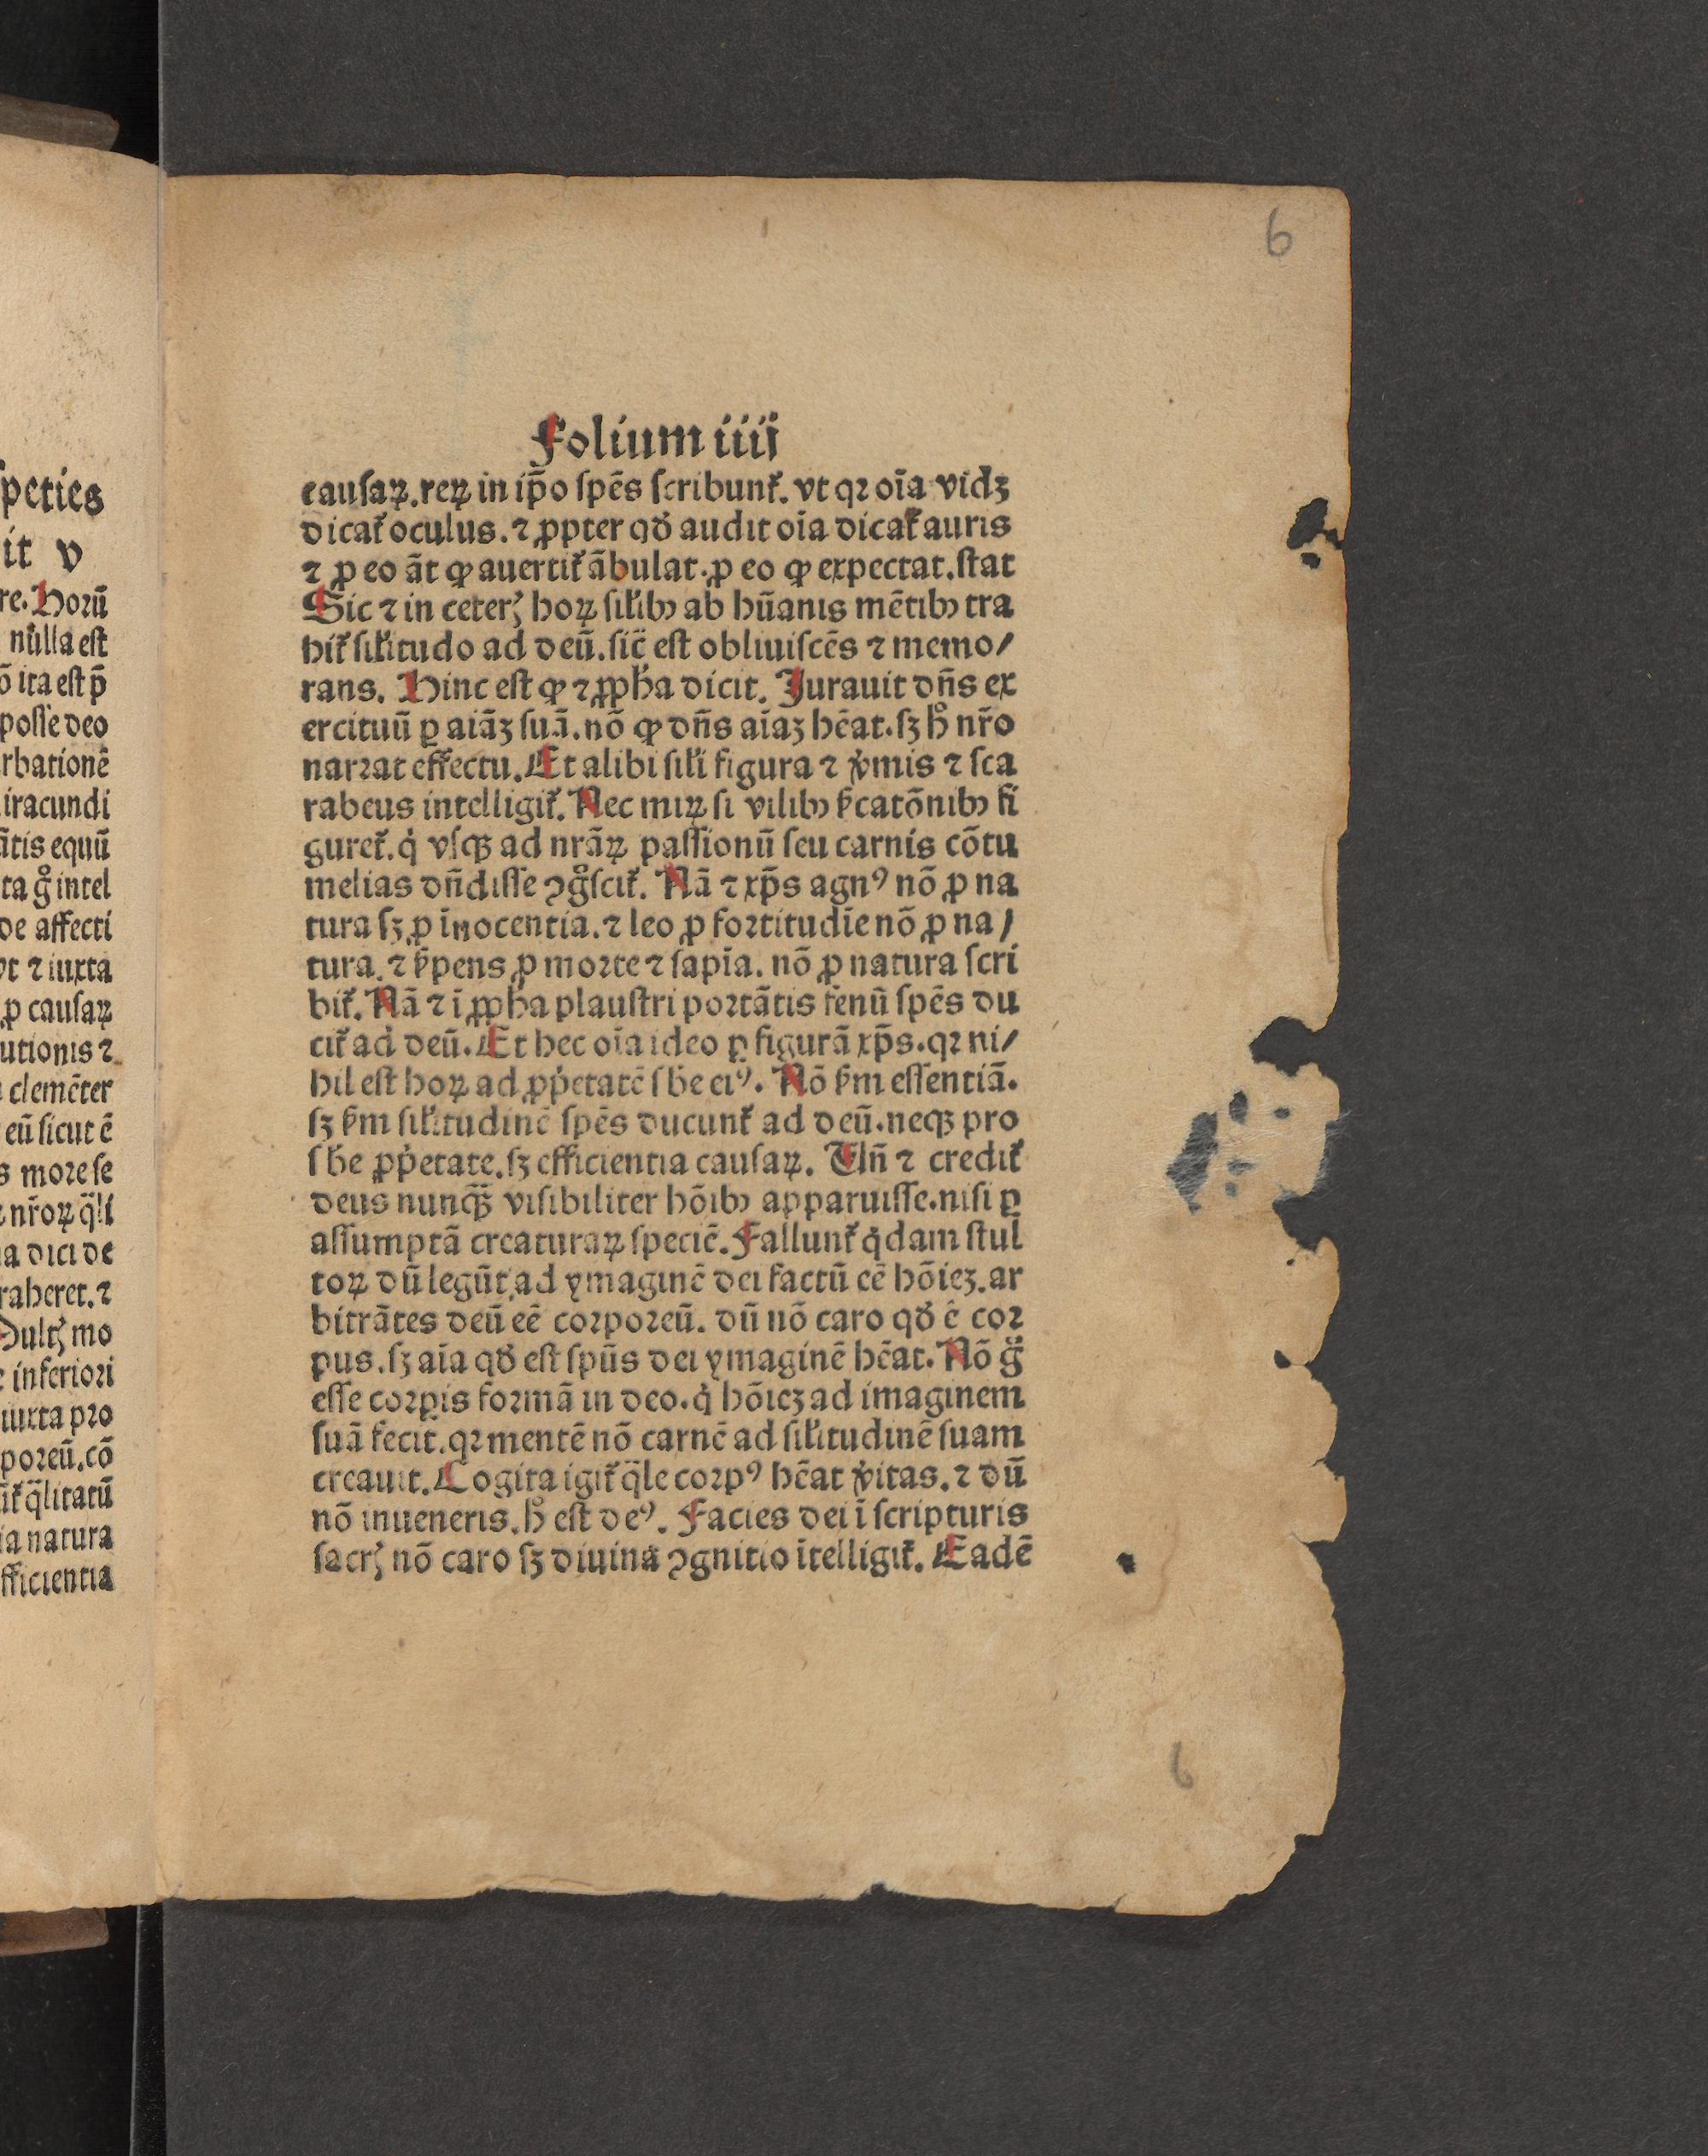 6
Folium iiij
causaꝝ.reꝝ in ip̄o spēs scribunt᷑. vt qꝛ oīa vidꝫ
dicat᷑ oculus. ⁊ ꝓpter qđ audit oīa dicat᷑ auris
⁊ ꝓ eo āt ꝙ auertit᷑ ābulat. ꝓ eo ꝙ expectat. stat
Sic ⁊ in ceterꝭ hoꝝ silibꝰ ab hūanis mētibꝰ tra
hit᷑ silitudo ad deū. sic̄ est obliuiscēs ⁊ memo/
rans. Hinc est ꝙ ⁊ ꝓph̄a dicit. Jurauit dn̄s ex
ercituū ꝑ aiāꝫ suā. nō ꝙ dn̄s aīaꝫ hēat. sꝫ hͦ nr̄o
narrat effectu. Et alibi sili figura ⁊ v̓mis ⁊ sca
rabeus intelligit᷑. Nec miꝝ si vilibꝰ sc̓atōnibꝰ fi
guret᷑. qͥ vsqꝫ ad nrāꝝ passionū seu carnis cōtu
melias dn̄disse ꝯgͦscit᷑. Nā ⁊ xp̄s agnꝰ nō ꝓ na
tura sꝫ ꝓ īnocentia. ⁊ leo ꝓ fortitudīe nō ꝓ na/
tura. ⁊ s̓pens ꝓ morte ⁊ sapīa. nō ꝓ natura scri
bit᷑. Nā ⁊ ī ꝓph̄a plaustri portātis fēnū spēs du
cit᷑ ad deū. Et hec oīa ideo ꝑ figurā xp̄s. qꝛ ni/
hil est hoꝝ ad ꝓp̓etatē sb̄e eiꝰ. Nō s̓m essentiā.
sꝫ s̓m silitudinē spēs ducunt᷑ ad deū. neqꝫ pro
sb̄e ꝓp̓etate. sꝫ efficientia causaꝝ. Un̄ ⁊ credit᷑
deus nunqᷓꝫ visibiliter hōibꝰ apparuisse. nisi ꝑ
assumptā creaturaꝝ speciē. Fallunt᷑ qͦdam stul
toꝝ dū legūt, ad ymaginē dei factū eē hōieꝫ. ar
bitrātes deū eē corporeū. dū nō caro qđ ē cor
pus. sꝫ aīa qđ est spūs dei ymaginē hēat. Nō gͦ
esse corꝑis formā in deo. qͥ hōieꝫ ad imaginem
suā fecit. qꝛ mentē nō carnē ad silitudinē suam
creauit. Cogita igit᷑ qᷓle corpꝰ hēat v̓itas. ⁊ dū
nō inueneris. hͦ est deꝰ. Facies dei ī scripturis
sacrꝭ nō caro sꝫ diuina ꝯgnitio ītelligit᷑. Eadē
6